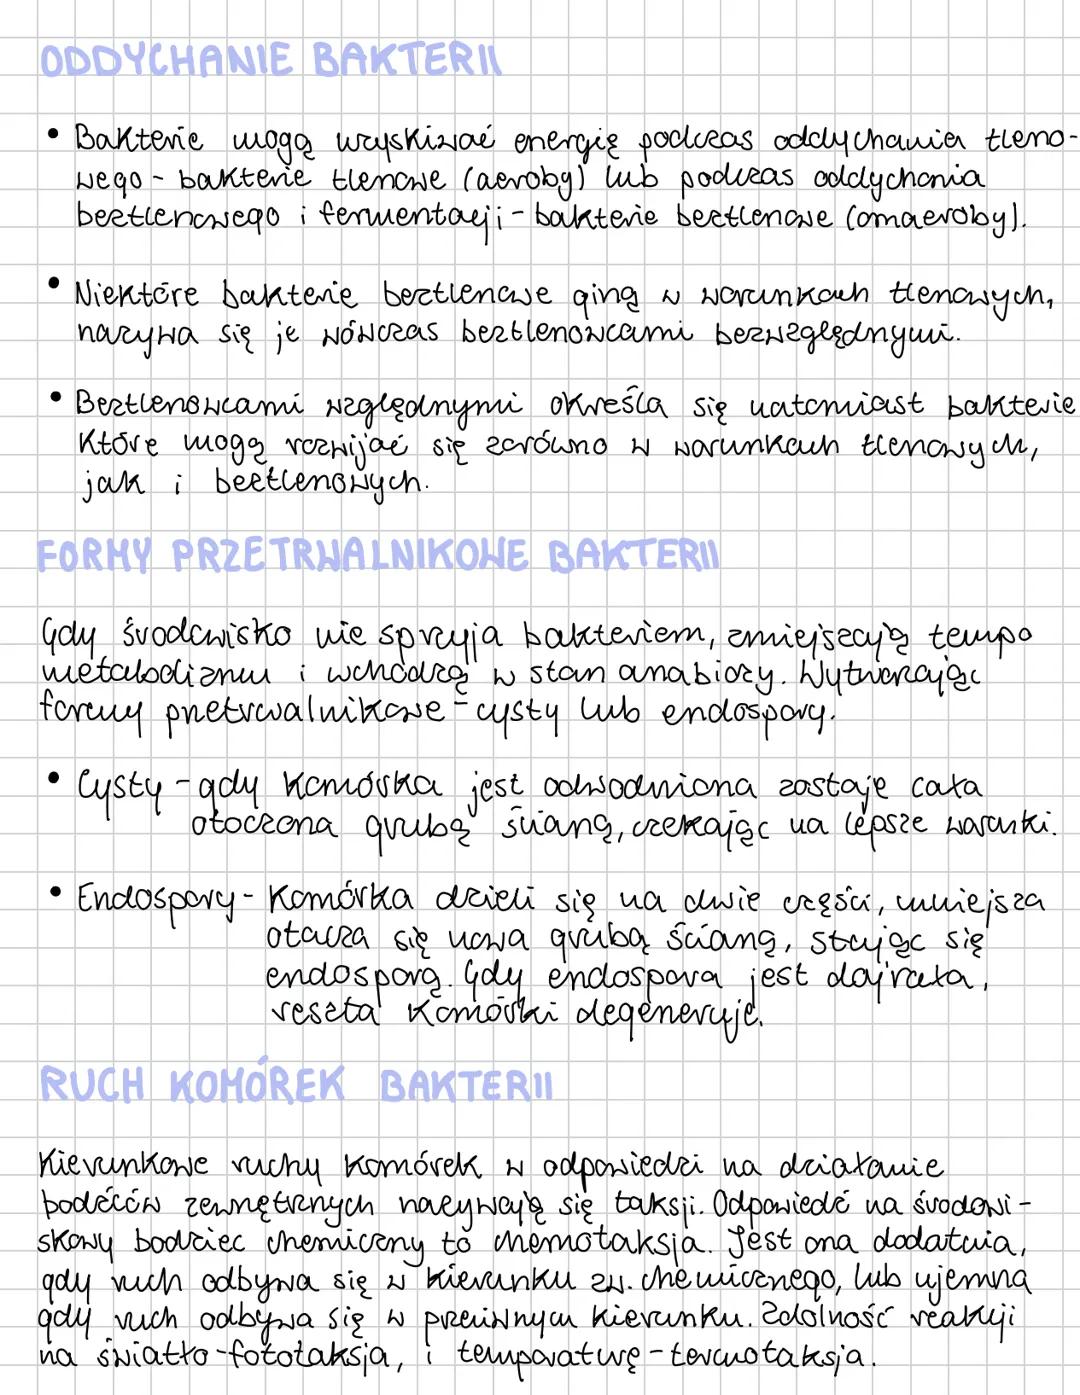 ODDYCHANIE BAKTERII
• Bakterie mogą wzyskiwać energię podczas oddychania tleno-
wego - bakterie tlenowe (aeroby) lub podczas oddychania
beztlenowego i fermentacji - bakterie beztlenowe (anaeroby).
• Niektóre bakterie beztlenowe giną w warunkach tlenowych,
nazywa się je wówczas beztlenowcami bezwzględnymi.
• Beztlenowcami względnymi określa się natomiast bakterie
które mogą rozwijać się zarówno w warunkach tlenowych,
jak i beztlenowych.
FORMY PRZETRWALNIKOWE BAKTERII
Gdy środowisko nie sprzyja bakteriem, zmiejszają tempo
metabolizmu i wchodzą w stan anabiozy. Wytwarzając
formy przetrwalnikowe - cysty lub endospory.
• Cysty - gdy komórka jest odwodniona zostaje cała
otoczona grubą ścianą, czekając na lepsze warunki.
• Endospory - Komórka dzieli się na dwie części, mniejsza
otacza się nową grubą ścianą, stając się
endosporą. Gdy endospora jest dojrzała,
reszta komórki degeneruje.
RUCH KOMÓREK BAKTERII
Kierunkowe ruchy komórek w odpowiedzi na działanie
bodźców zewnętrznych nazywają się taksji. Odpowiedź na środowi-
skowy bodziec chemiczny to chemotaksja. Jest ona dodatnia,
gdy ruch odbywa się w kierunku zw. chemicznego, lub ujemna
gdy ruch odbywa się w przeciwnym kierunku. Zdolność reakcji
na światło - fototaksja, i temperaturę - termotaksja.